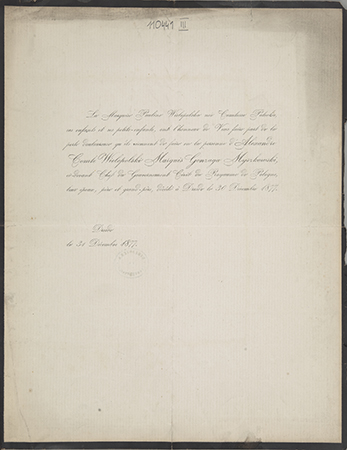 110441 III
La Marquise Pauline Wielopolska née Comtesse Potocka,
ses enfants et ses petits-enfants, ont l'honneur de Vous faire part de la
perte douloureuse qu'ils viennent de faire en la personne d'Alexandre
Comte Wielopolski Marquis Gonzaga Myszkowski,
ci-devant Chef du Gouvernement Civil du Royaume de Pologne,
leur époux, père et grand-père, décédé à Dresde le 30 Décembre 1877.
Dresde
le 31 Décembre 1877.